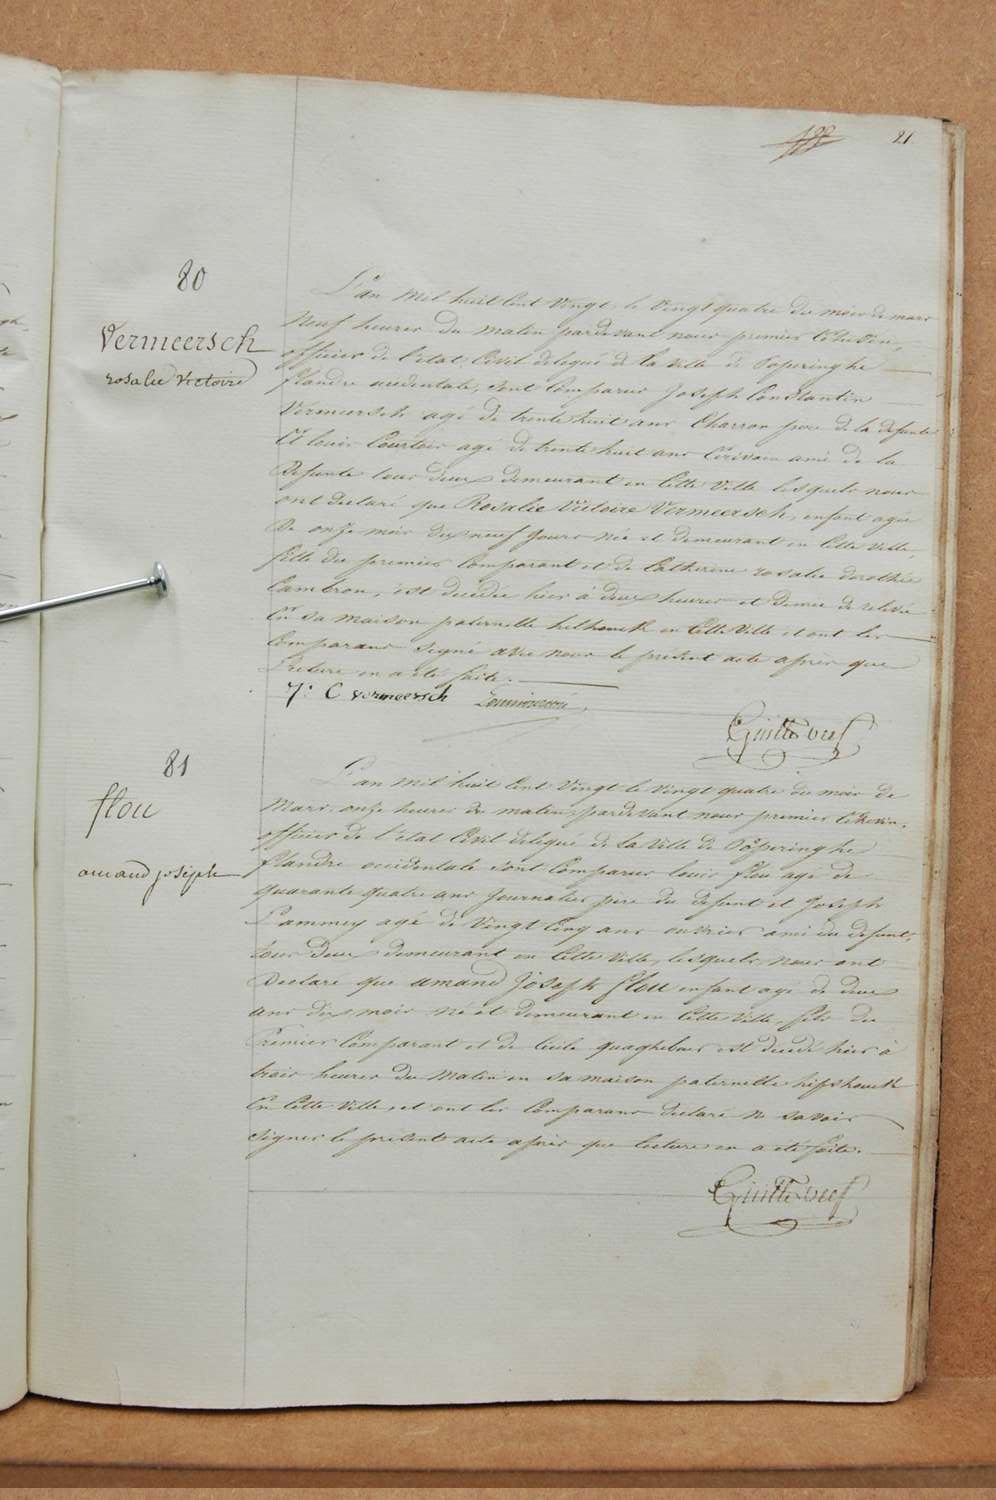 21
80
Vermeersch
rosalie Victoire
L'an mil huit Cent Vingt, le Vingt quatre du mois de mars
Neuf heures du matin pardevant nous premier Echevin,
officier de l'etat Civil delegué de la Ville de Poperinghe
flandre occidentale, sont Comparus Joseph Constantin
Vermeersch agé de trente huit ans Charron pere de la defunte
Et louis Courtois agé de trente huit ans Ecrivain ami de la
Defunte tous deux demeurant en Cette Ville lesquels nous
ont declaré que Rosalie Victoire Vermeersch, enfant agée
De onze mois dix neuf Jours née et demeurant en Cette Ville,
fille du premier Comparant et de Catherine rosalie dorothée
Cambron, est decedée hier à deux heures et Demie de relevée
En sa maison paternelle helhouck en Cette Ville et ont les
Comparans signé avec nous le présent acte après que
Lecture en a eté faite.
J: C vermeersch
81
flou
amand joseph
L'an mil huit Cent Vingt le Vingt quatre du mois de
Mars, onze heures du matin, pardevant nous premier Echevin,
officier de l'etat Civil delegué de la Ville de Poperinghe
flandre occidentale sont Comparus louis flou agé de
quarante quatre ans Journalier pere du defunt et Joseph
agé de Vingt Cinq ans ouvrier ami du defunt,
tous Deux demeurant en Cette Ville, lesquels nous ont
Declaré que amand Joseph flou enfant agé de deux
ans dix mois né et demeurant en Cette Ville, fils du
Premier Comparant et de Cecile quaghebeur est decedé hier à
trois heures du Matin en sa maison paternelle hipshouck
En Cette Ville, et ont les Comparans declaré ne savoir
Signer le présent acte après que lecture en a eté faite.